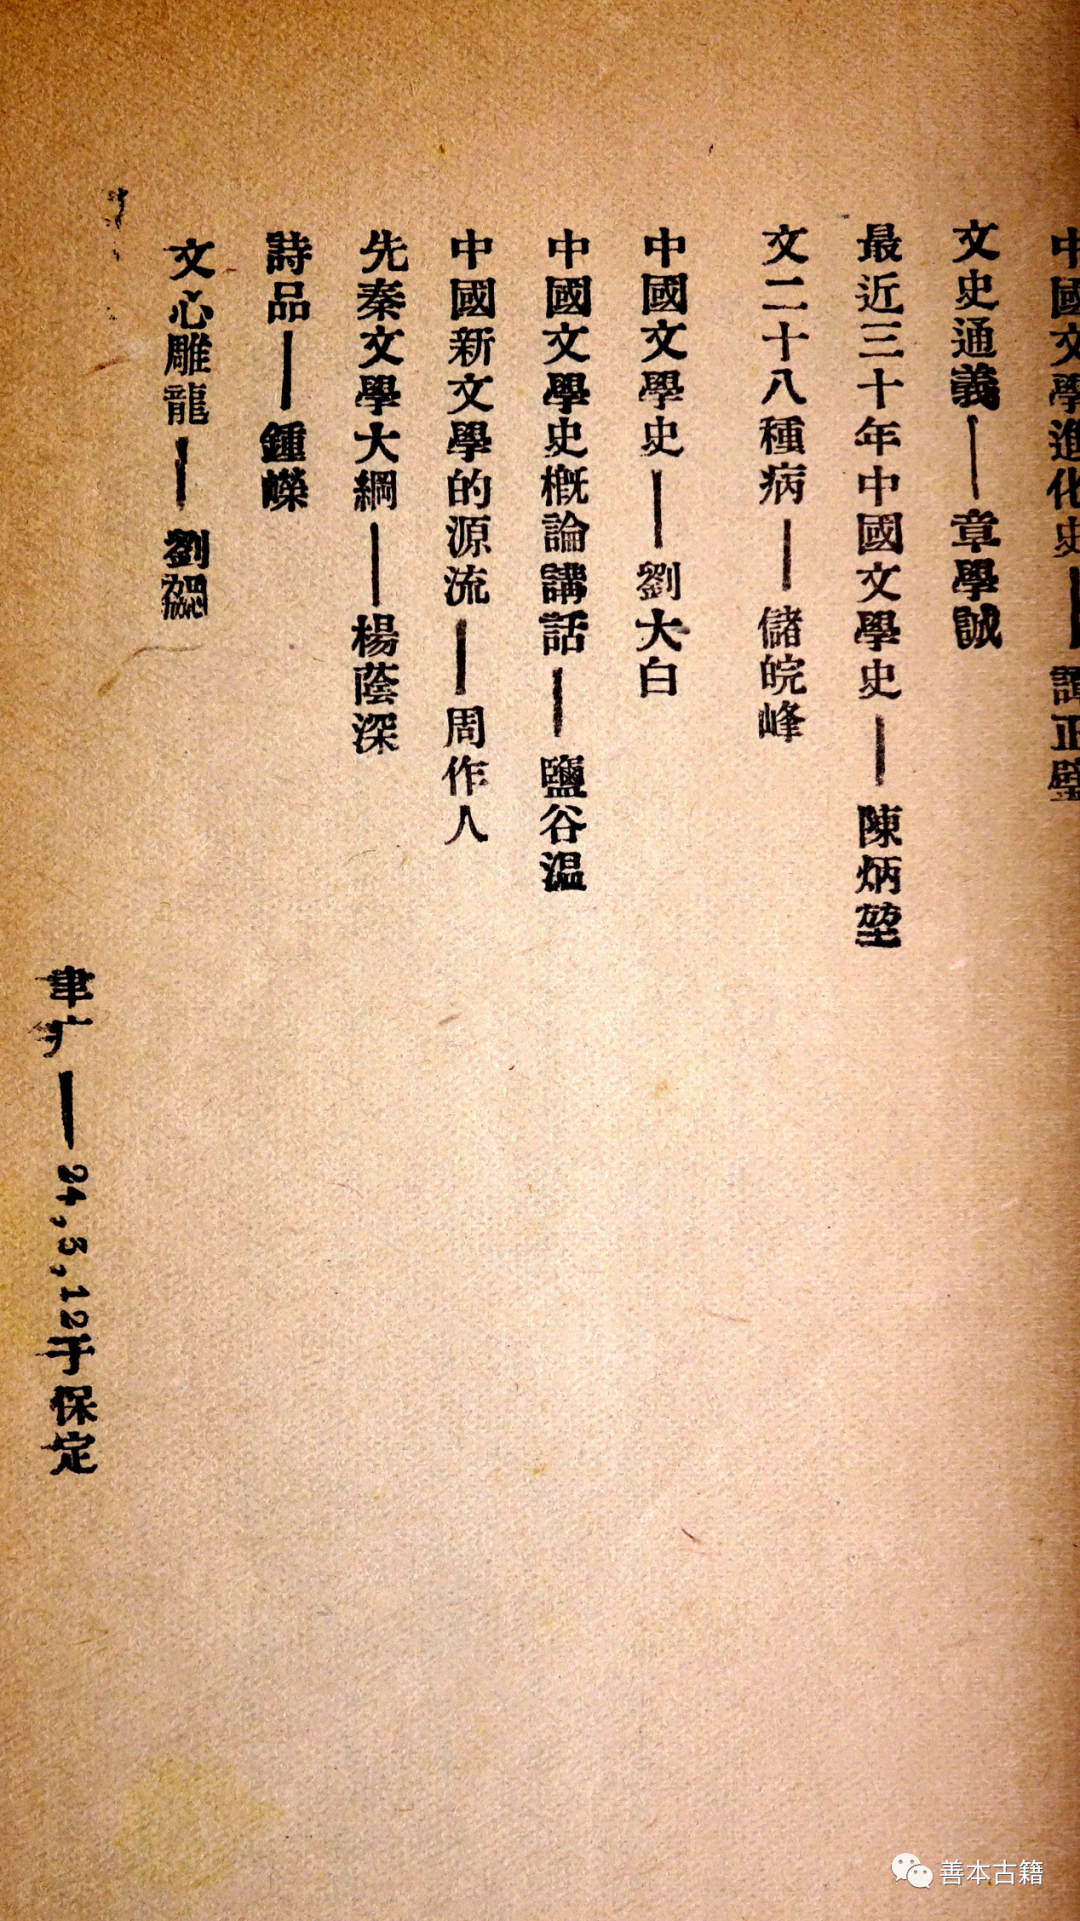 中國文學進化史——譚正璧
文史通義——章學誠
最近三十年中國文學史——陳炳堃
文二十八種病——儲皖峰
中國文學史——劉大白
中國文學史概論講話——鹽谷溫
中國新文學的源流——周作人
先秦文學大綱——楊蔭深
詩品——鍾嶸
文心雕龍——劉勰
——24,5,12于保定
善本古籍